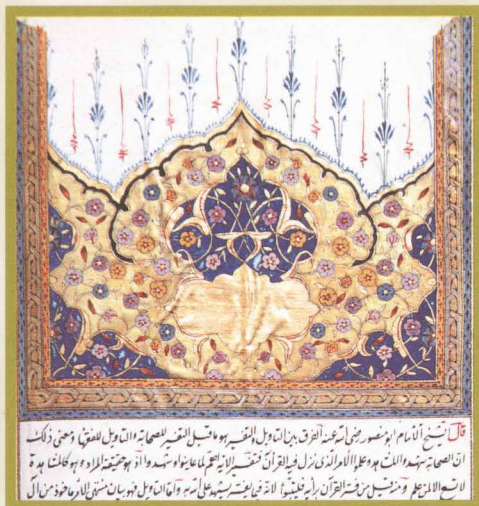 قال الشيخ الامام ابو منصور رضى الله عنه الفرق بين التاويل والتفسير هو ما قيل التفسير للصحابة والتاويل للفقهاء ومعنى ذلك
ان الصحابة شهدوا المشاهد وعلموا الامر الذى نزل فيه القرآن فتفسير الآية اهم لما عاينوا وشهدوا اذ هو حقيقة المراد وهو كالمشاهدة
لا تسع الا لمن علم ومنه قيل من فسر القرآن برأيه فليتبوأ لانه فيما يفسر يشهد على الله به واما التاويل فهو بيان منتهى الامر مأخوذ من آل